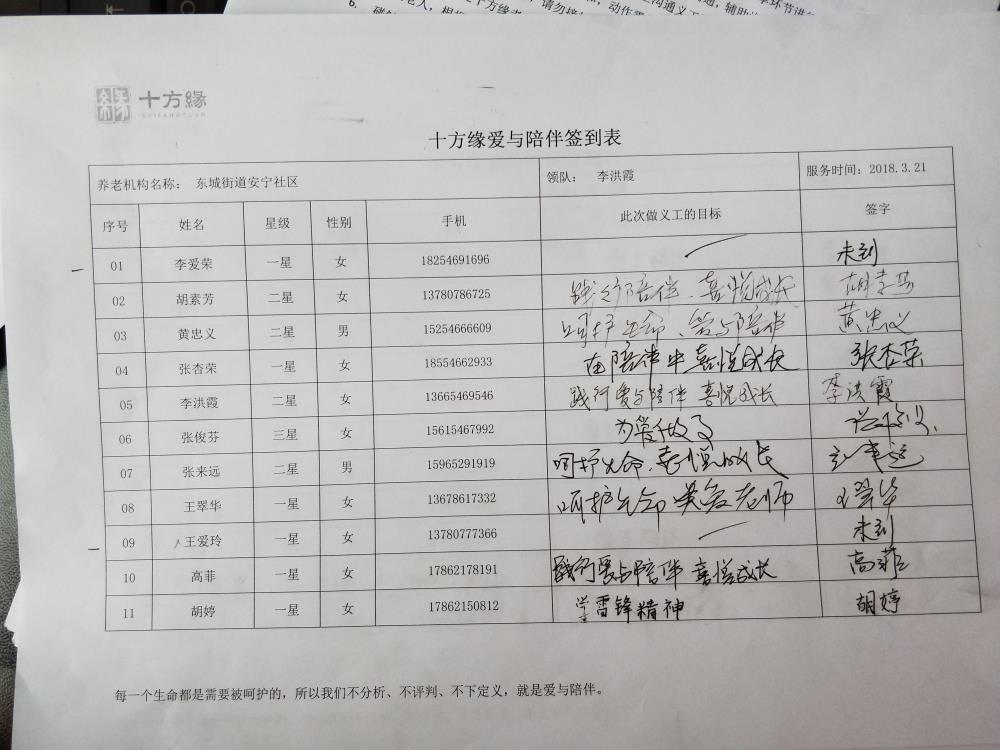 十方緣
SHIFANGYUAN
十方缘爱与陪伴签到表
养老机构名称： 东城街道安宁社区 领队： 李洪霞 服务时间：2018.3.21
序号 姓名 星级 性别 手机 此次做义工的目标 签字
01 李爱荣 一星 女 18254691696 — 未到
02 胡素芳 二星 女 13780786725 践行陪伴、喜悦成长 胡素芳
03 黄忠义 二星 男 15254666609 呵护生命、爱与陪伴 黄忠义
04 张杏荣 一星 女 18554662933 在陪伴中喜悦成长 张杏荣
05 李洪霞 二星 女 13665469546 践行爱与陪伴 喜悦成长 李洪霞
06 张俊芬 三星 女 15615467992 为爱做
07 张来远 二星 男 15965291919 呵护生命、喜悦成长
08 王翠华 一星 女 13678617332 呵护生命 关爱老师 王翠华
09 王爱玲 一星 女 13780777366 — 未到
10 高菲 一星 女 17862178191 践行爱与陪伴 喜悦成长 高菲
11 胡婷 一星 女 17862150812 学雷锋精神 胡婷
每一个生命都是需要被呵护的，所以我们不分析、不评判、不下定义，就是爱与陪伴。